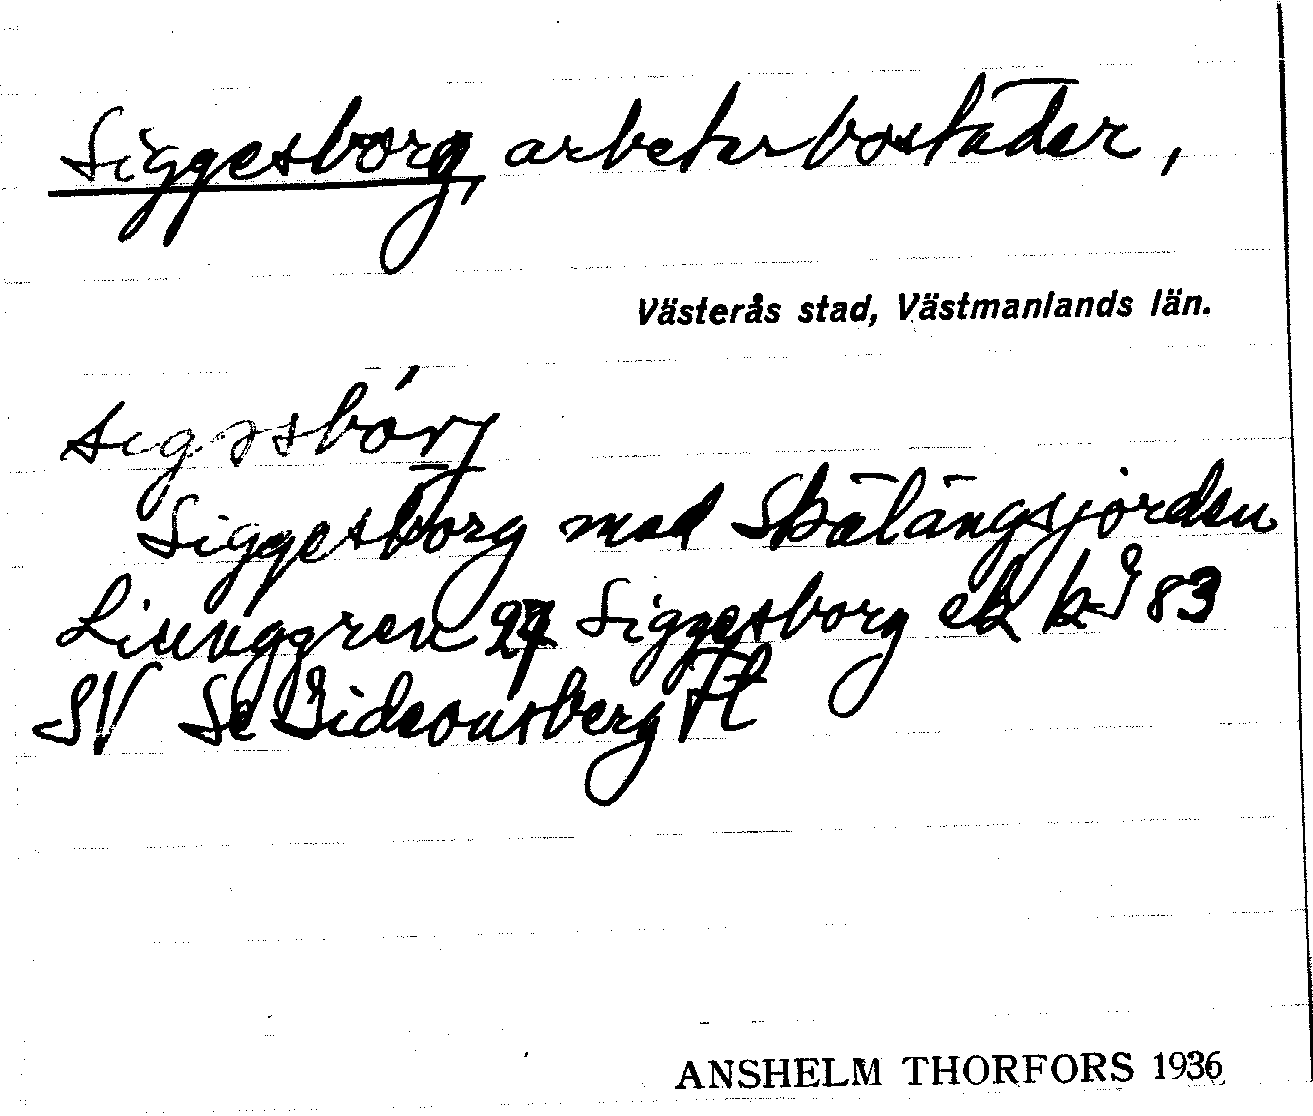 Siggesborg, arbetarbostäder,
Västerås stad, Västmanlands län.
Siggesborg med Skälängsjorden
Liunggren 27 Siggesborg ek k I 83
SV Se Gideonsberg Ft
ANSHELM THORFORS 1936